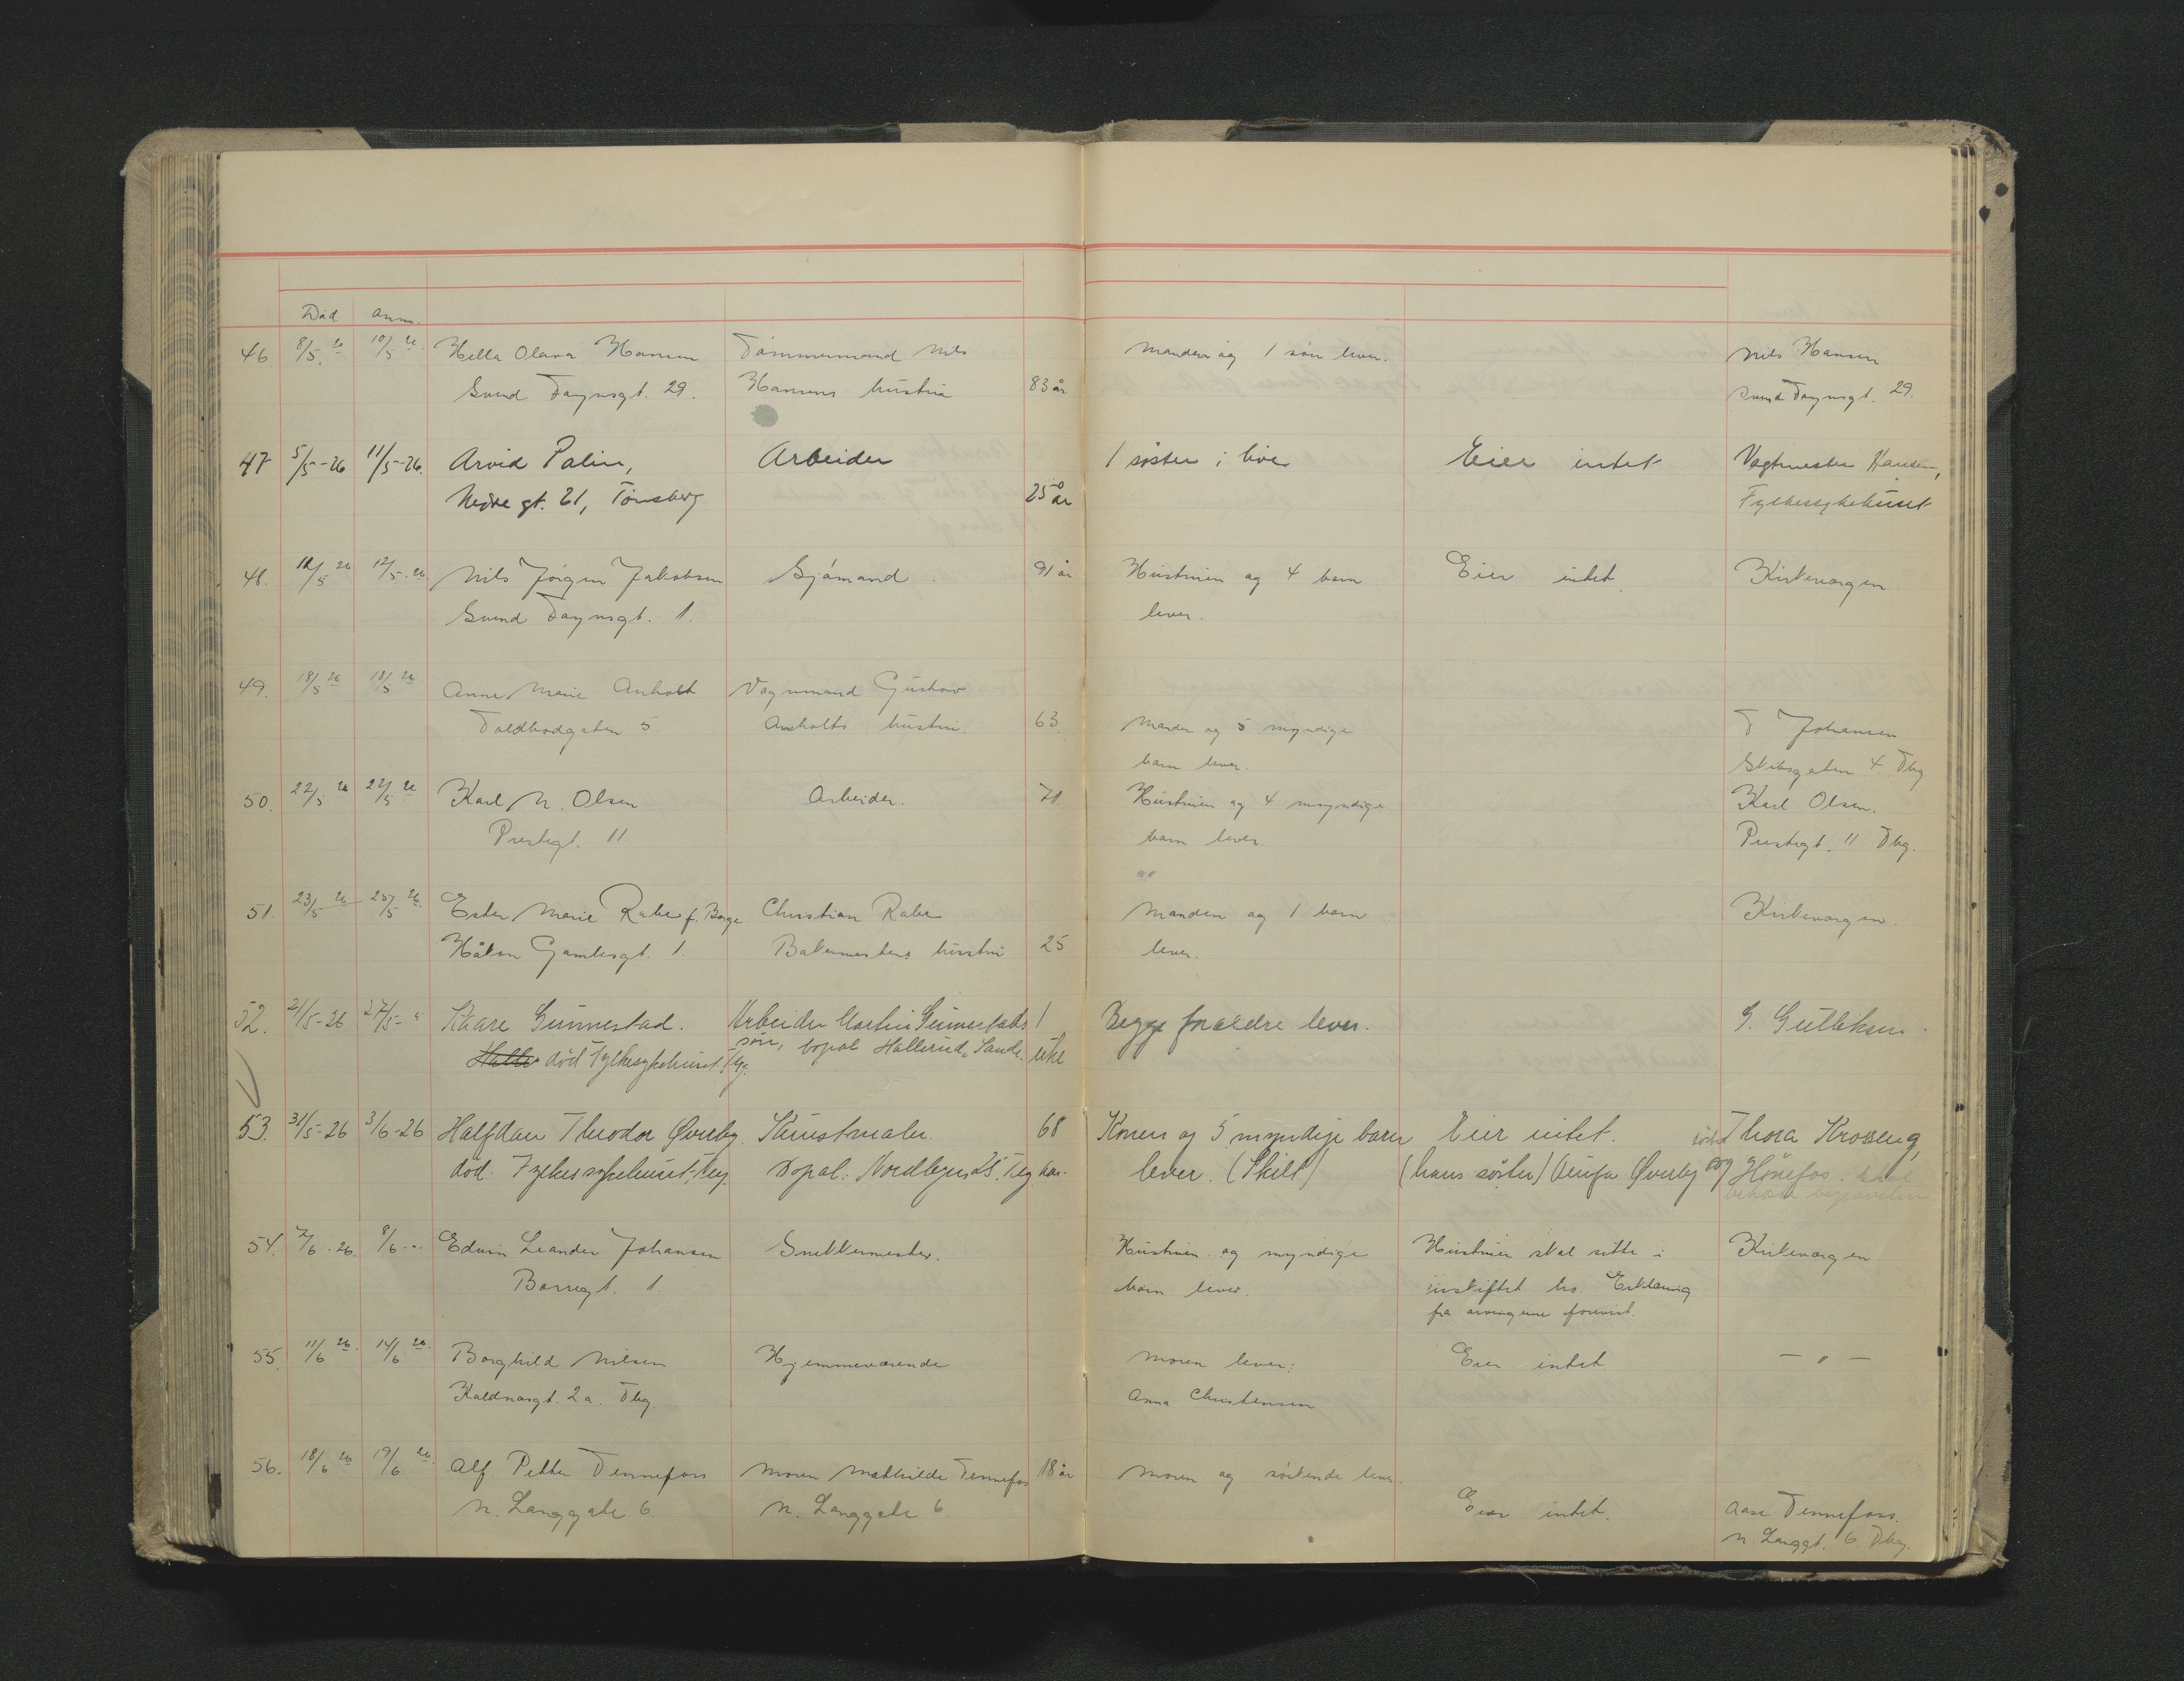 Död Anm.
46 8/5 26 10/5 26 Hella Olava Hansen Tömmermand Nils Manden og 1 sön lever. Nils Hansen
Svend Foynsgt. 29. Hansens hustru 83 år Svend Foynsgt. 29.
47 5/5-26 11/5-26. Arvid Palin, Arbeider 1 söster i live Eier intet Vagtmester Hansen,
Nedre gt. 21, Tönsberg 25 år Fylkessykehuset
48. 12/5 26 12/5.26 Nils Jörgen Jakobsen Sjömand. 91 år Hustruen og 4 barn Eier intet. Kirkevergen
Svend Foynsgt. 1. lever.
49. 18/5 26 18/5 26 Anne Marie Anholt Vognmand Gustav
Toldbodgaten 5 Anholts hustru. 63 Manden og 5 myndige T Johansen
barn lever. Skibsgaten 4 Tbg
50. 22/5 26 22/5 26 Karl N. Olsen Arbeider. 71. Hustruen og 4 myndige Karl Olsen.
Prestegt. 11 barn lever. Prestegt. 11 Tbg.
51. 23/5 26 25/5 26. Ester Marie Rabe f. Borge Christian Rabe Manden og 1 barn Kirkevergen.
Håkon Gamlesgt. 1. Bakermesters hustru 25 lever.
52. 21/5-26 27/5-" Kaare Gunnestad. Arbeider Martin Gunnestads 1 Begge forældre lever. G. Gulliksen.
död Fylkesykehuset Tbg. sön, bopæl Hallerud, Sande. uke
53. 31/5-26 3/6-26 Halfdan Theodor Överby. Kunstmaler. 68 Konen og 5 myndige barn Eier intet. söster Thora Krosseng,
död: Fylkessykehuset, Tbg. Bopæl: Nordbyens Tbg. lever. (Skilt) (hans söster) Överby og Hönefos.
begravelsen
54. 7/6.26. 8/6-" Edvin Leander Johansen Snekkermester. Hustruen og myndige Hustruen skal sitte i Kirkevergen
Borregt. 1. barn lever. uskiftet bo. Erklæring
fra arvingerne forevist.
55. 11/6 26. 14/6 26. Borghild Nilsen Hjemmeværende Moren lever: Eier intet. — " —
Kaldnæsgt. 2a. Tbg. Anna Christensen
56. 18/6 26 19/6 26. Alf Petter Tennefoss Moren Mathilde Tennefoss 18 år Moren og söskende lever.
N. Langgate 6 N. Langgate 6 Eier intet. Aase Tennefoss.
N. Langgt. 6. Tbg.